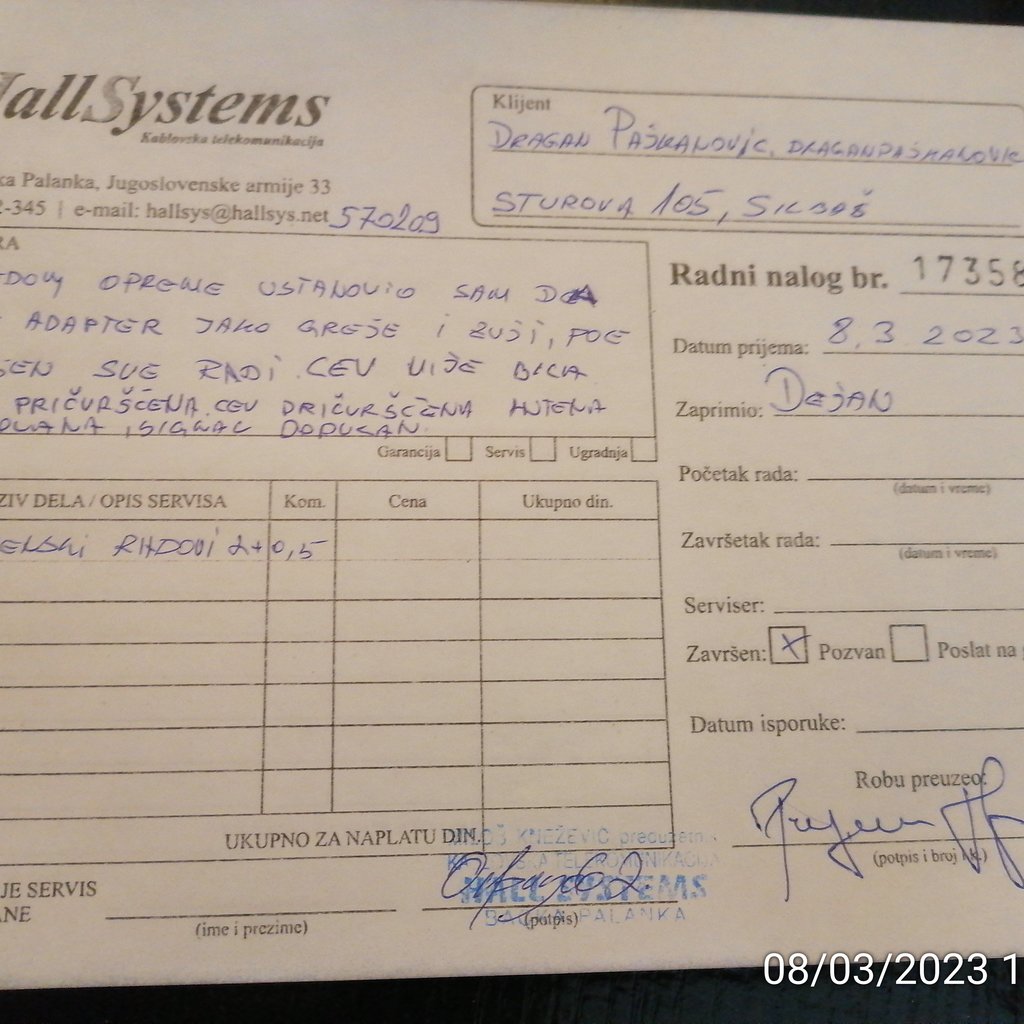 HallSystems
Kablovska telekomunikacija
ka Palanka, Jugoslovenske armije 33
2-345 | e-mail: hallsys@hallsys.net 570209
Klijent
DRAGAN PAŠKANOVIC, DRAGANPAŠMANOVIC
STUROVA 105, SILBAŠ
RA
OPREME USTANOVIO SAM DA
ADAPTER JAKO GREJE I ZUJI, POE
SUE RADI. CEV VIŠE BILA
PRIČVRŠĆENA. CEV PRIČVRŠĆENA ANTENA
, SIGNAL DOPUCAN.
Garancija Servis Ugradnja
Radni nalog br. 17358
Datum prijema: 8.3 2023
Zaprimio: DEJAN
Početak rada:
(datum i vreme)
Završetak rada:
(datum i vreme)
Serviser:
Završen: X Pozvan Poslat na
Datum isporuke:
Robu preuzeo:
(potpis i broj l.k.)
ZIV DELA / OPIS SERVISA Kom. Cena Ukupno din.
RADOVI 2+0,5
UKUPNO ZA NAPLATU DIN.
KNEŽEVIĆ preduzetn.
KABLOVSKA TELEKOMUNIKACIJA
HALL SYSTEMS
BAČKA PALANKA
JE SERVIS
NE
(ime i prezime)
(potpis)
08/03/2023 1